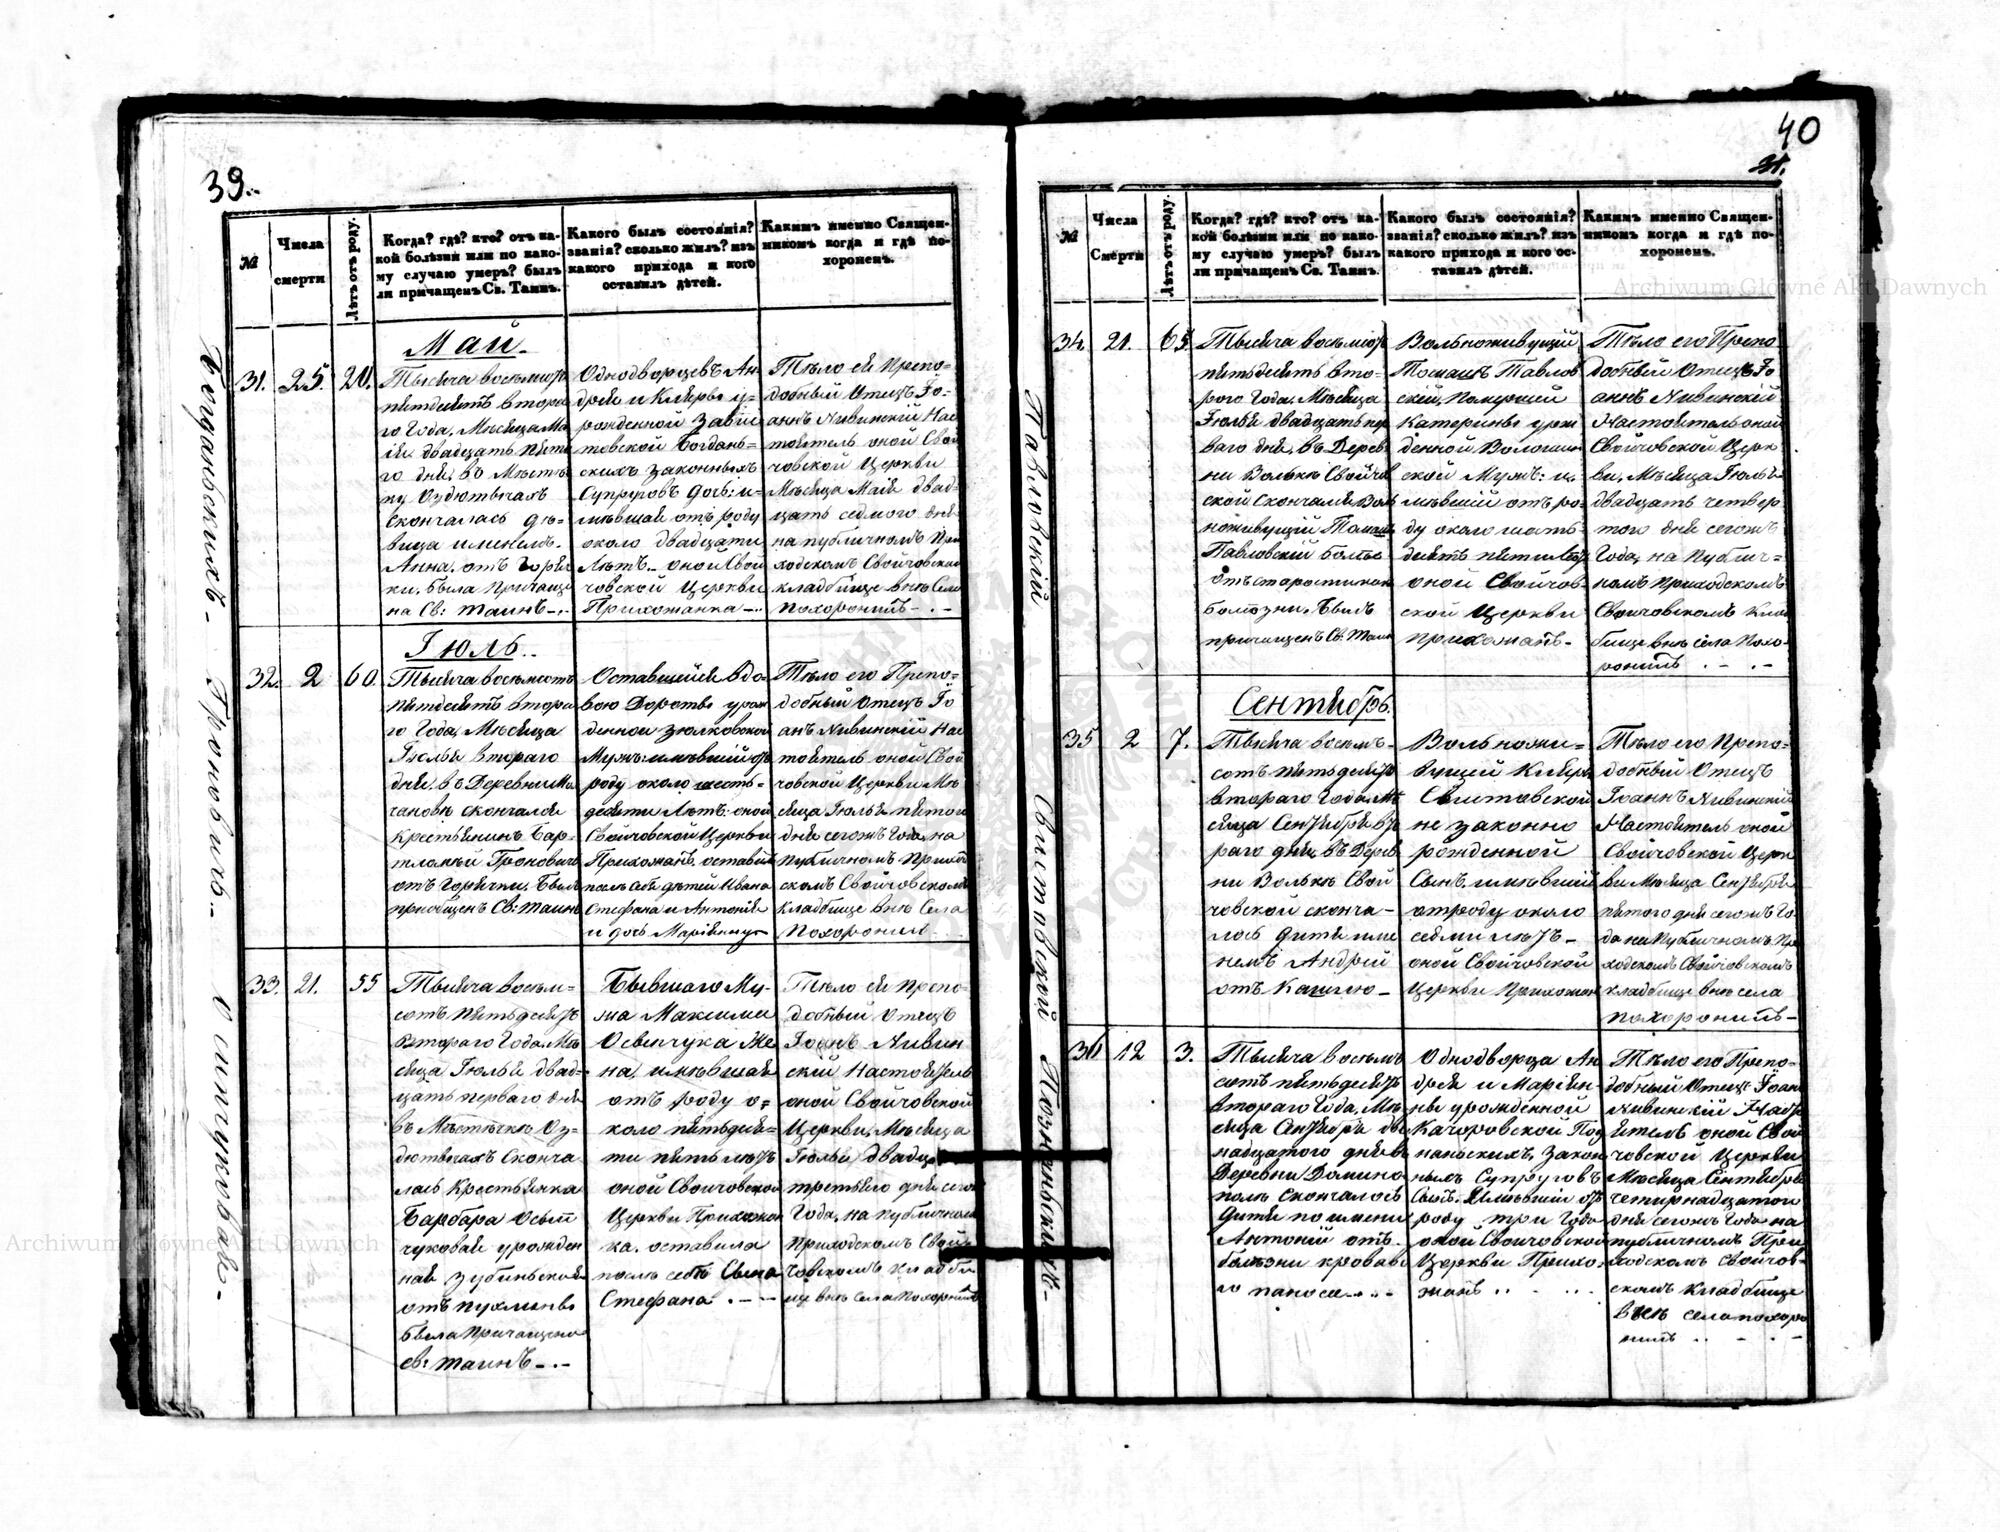 39.
№
Числа
смерти
Лѣтъ отъ роду.
Когда? гдѣ? кто? отъ ка-
кой болѣзни или по како-
му случаю умеръ? былъ
ли причащенъ Св. Таинъ.
Какого былъ состоянія?
званія? сколько жилъ? изъ
какого прихода и кого
оставилъ дѣтей.
Какимъ именно Священ-
никомъ когда и гдѣ по-
хороненъ.
Май.
31. 25. 20.
Тысяча восемьсотъ
пятдесятъ второ
го Года, Мѣсяца Ма
ія двадцать пято
го дня, въ Мѣстеч
ку Оздютычахъ
скончалась дѣ-
вица именемъ
Анна, отъ Горяч
ки, была Причаще
на Св: Таинъ
Однодворцевъ Ан
дрея и
рожденной
товской Богдань-
скихъ законныхъ
Супруговъ дочь: и-
мѣвшая отъ роду
около двадцати
Лѣтъ оной Свой
човской Церкви
Прихожанка
Тѣло ея Препо-
добный Отецъ Іо-
аннъ Нивинскій Нас
тоятель оной Свой
човской Церкви
Мѣсяца Маія двад-
цать седмого дня
на публичномъ При
ходскомъ Свойчовском
кладбище внѣ Села
похоронилъ
Іюль.
32. 2 60.
Тысяча восемьсотъ
пятдесятъ второ
го Года, Мѣсяца
Іюлья втораго
дня, въ Деревни Ма
чановѣ скончался
Крестьянинъ Бар-
тломѣй Гроновичъ
отъ Горячки. Былъ
приобщенъ Св: Таинъ
Оставшейся вдо-
вою Доротьі урож
денной Зюлковской
Мужъ имѣвшій отъ
роду около шесть-
десяти Лѣтъ: оной
Свойчовской Церкви
Прихожанъ, оставилъ
послѣ себя дѣтей Ивана
Стефана и Антонія
и дочь Маріянну
Тѣло его Препо-
добный Отецъ Іо
анъ Нивинскій Нас
тоятель оной Свой
човской Церкви Мѣ
сяца Іюлья пятого
дня сегожъ Года, на
публичномъ Приход
скомъ Свойчовскомъ
кладбище внѣ Села
Похоронилъ
33. 21. 55
Тысяча восем-
сотъ пятьдесятъ
втораго Года, Мѣ
сяца Іюлья двад-
цать перваго дня
въ Мѣстечкѣ Оз-
дютычахъ сконча
лась Крестьянка
Барбара Осып
чуковая урожден
ная Зубиньская
отъ пухлины
была Причащена
св: Таинъ
Бывшаго Му-
жа Максима
Осыпчука Же
на, имѣвшая
отъ роду о-
коло пятьдеся-
ти пять лѣтъ
оной Свойчовской
Церкви Прихожан
ка. оставила
послѣ себѣ Сына
Стефана
Тѣло ея Препо-
добный Отецъ
Іоанъ Нивин
скій Настоятель
оной Свойчовской
Церкви, Мѣсяца
Іюлья двадца
третьяго дня сегож
Года, на публичном
приходскомъ Свой
човскомъ кладби
ще внѣ села похоронилъ
Гроновичъ
40
31.
№
Числа
Смерти
Лѣтъ отъ роду.
Когда? гдѣ? кто? отъ ка-
кой болѣзни или по како-
му случаю умеръ? былъ
ли причащенъ Св. Таинъ.
Какого былъ состоянія?
званія? сколько жилъ? изъ
какого прихода и кого ос-
тавилъ дѣтей.
Какимъ именно Священ-
никомъ когда и гдѣ по-
хороненъ.
34. 21. 65
Тысяча восемьсотъ
пятьдесятъ вто-
рого Года, Мѣсяца
Іюлья двадцать пер
ваго дня, въ Дерев
ни Волькѣ Свойчов
ской скончался Воль
ноживущій Томашъ
Павловскій
отъ
болѣзни. Былъ
причащенъ Св: Таинъ
Вольноживущій
Томашъ Павлов
скій,
Катерины урож
денной
ской Мужъ: и-
мѣвшій отъ ро
ду около шесть
десятъ пяти Лѣтъ
оной Свойчов
ской Церкви
прихожанъ
Тѣло его Препо
добный Отецъ Іо
аннъ Нивинскій
Настоятель оной
Свойчовской Церк
ви, Мѣсяца Іюлья
двадцать четвер
того дня сегожъ
Года, на публич-
номъ Приходскомъ
Свойчовскомъ клад
бище внѣ села Похо-
ронилъ
Павловскій
Сентябрь.
35 2 7.
Тысяча восемь-
сотъ пятьдесятъ
втораго Года, Мѣ
сяца Сентября вто
раго дня, въ Дерев
ни Волькѣ Свой
човской сконча-
лось дитя име
немъ Андрій
отъ Кашлю
Вольножи-
вущей
Свитовской
не законно
рожденной
Сынъ, имѣвшій
отроду около
седми лѣтъ
оной Свойчовской
Церкви Прихожан
Тѣло его Препо-
добный Отецъ
Іоаннъ Нивинскій
Настоятель оной
Свойчовской Церк
ви Мѣсяца Сентября
пятого дня сегожъ Го-
да на Публичномъ При
ходскомъ Свойчовскомъ
кладбище внѣ села
похоронилъ
Свитовскій
36 12 3.
Тысяча восемь
сотъ пятьдесятъ
втораго Года, Мѣ
сяца Сентября две
надцатого дня въ
Деревни Домино
поль скончалось
дитя по имени
Антоній отъ
болѣзни кроваво
го поноса
Однодворца Ан
дрея и Маріян-
ны урожденной
Качоровской Поз
наньскихъ закон
ныхъ Супруговъ
Сынъ. Имѣвшій отъ
роду три Года
оной Свойчовской
Церкви Прихо-
жанъ
Тѣло его Препо-
добный Отецъ Іоан
Нивинскій Насто
ятель оной Свой
човской Церкви
Мѣсяца Сентября
четирнадцатого
дня сегожъ Года на
публичномъ При
ходскомъ Свойчов-
скомъ Кладбище
внѣ села похоро
нилъ
Познаньскій
Archiwum Główne Akt Dawnych
Archiwum Główne Akt Dawnych